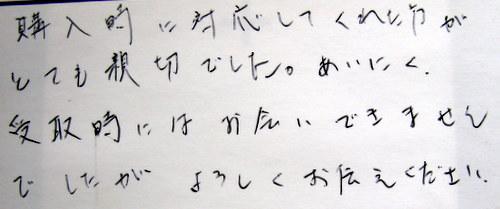 購入時に対応してくれた方が
とても親切でした。あいにく、
受取時にはお会いできません
でしたが よろしくお伝えください。